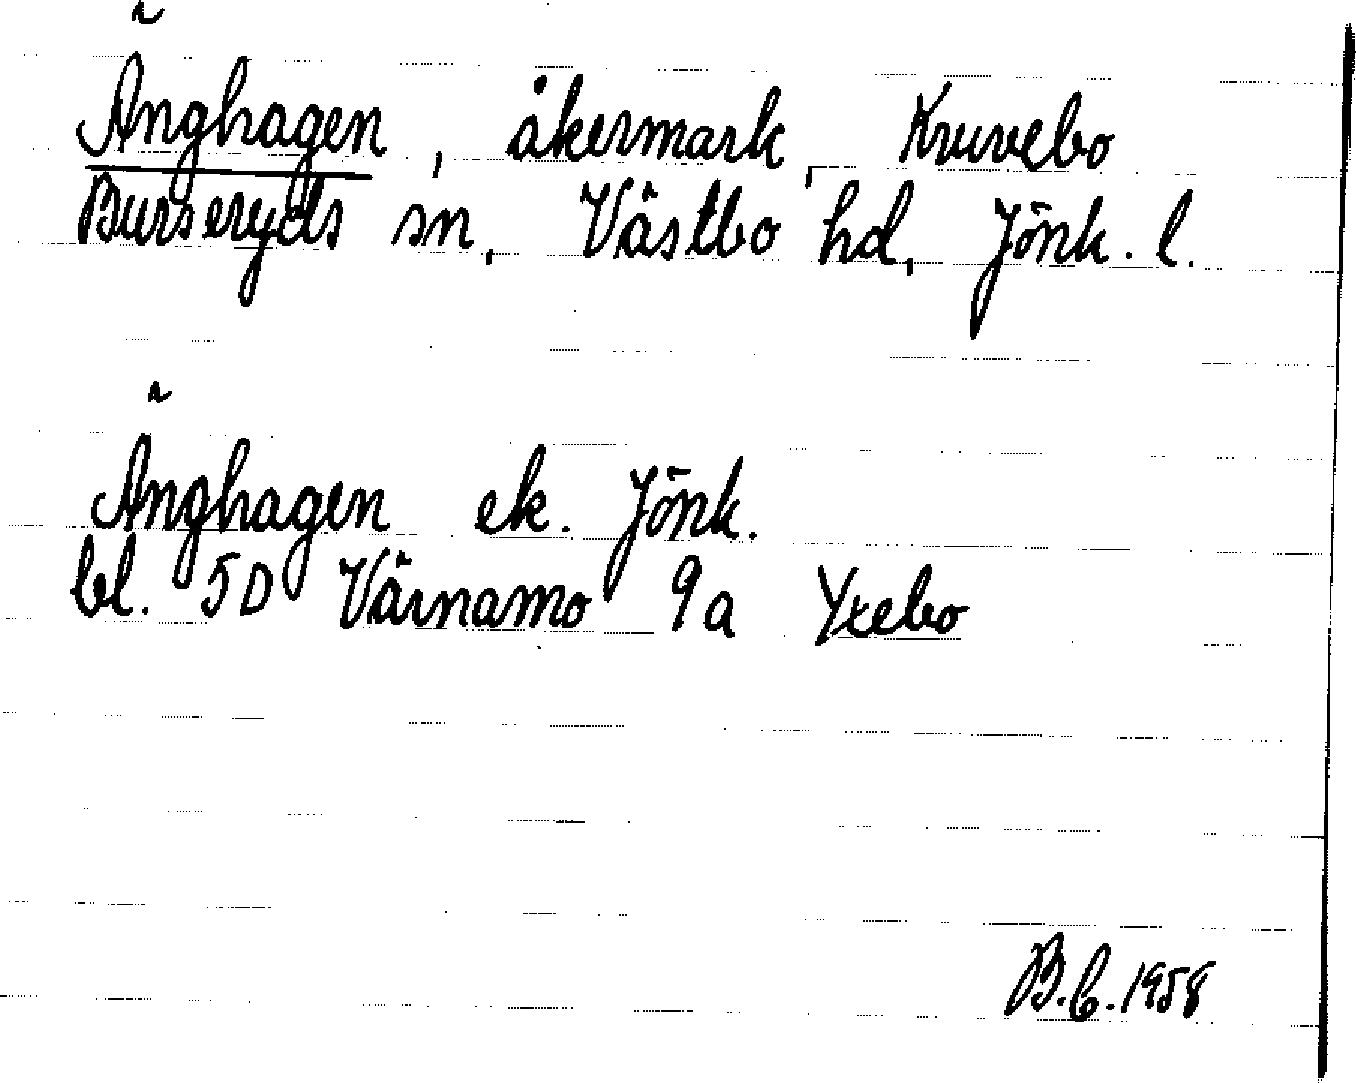 Änghagen, åkermark, Kruvebo
Burseryds sn, Västbo hd, Jönk. l.
Änghagen ek. Jönk.
bl. 5D Värnamo 9a Yxebo
B.C.1958